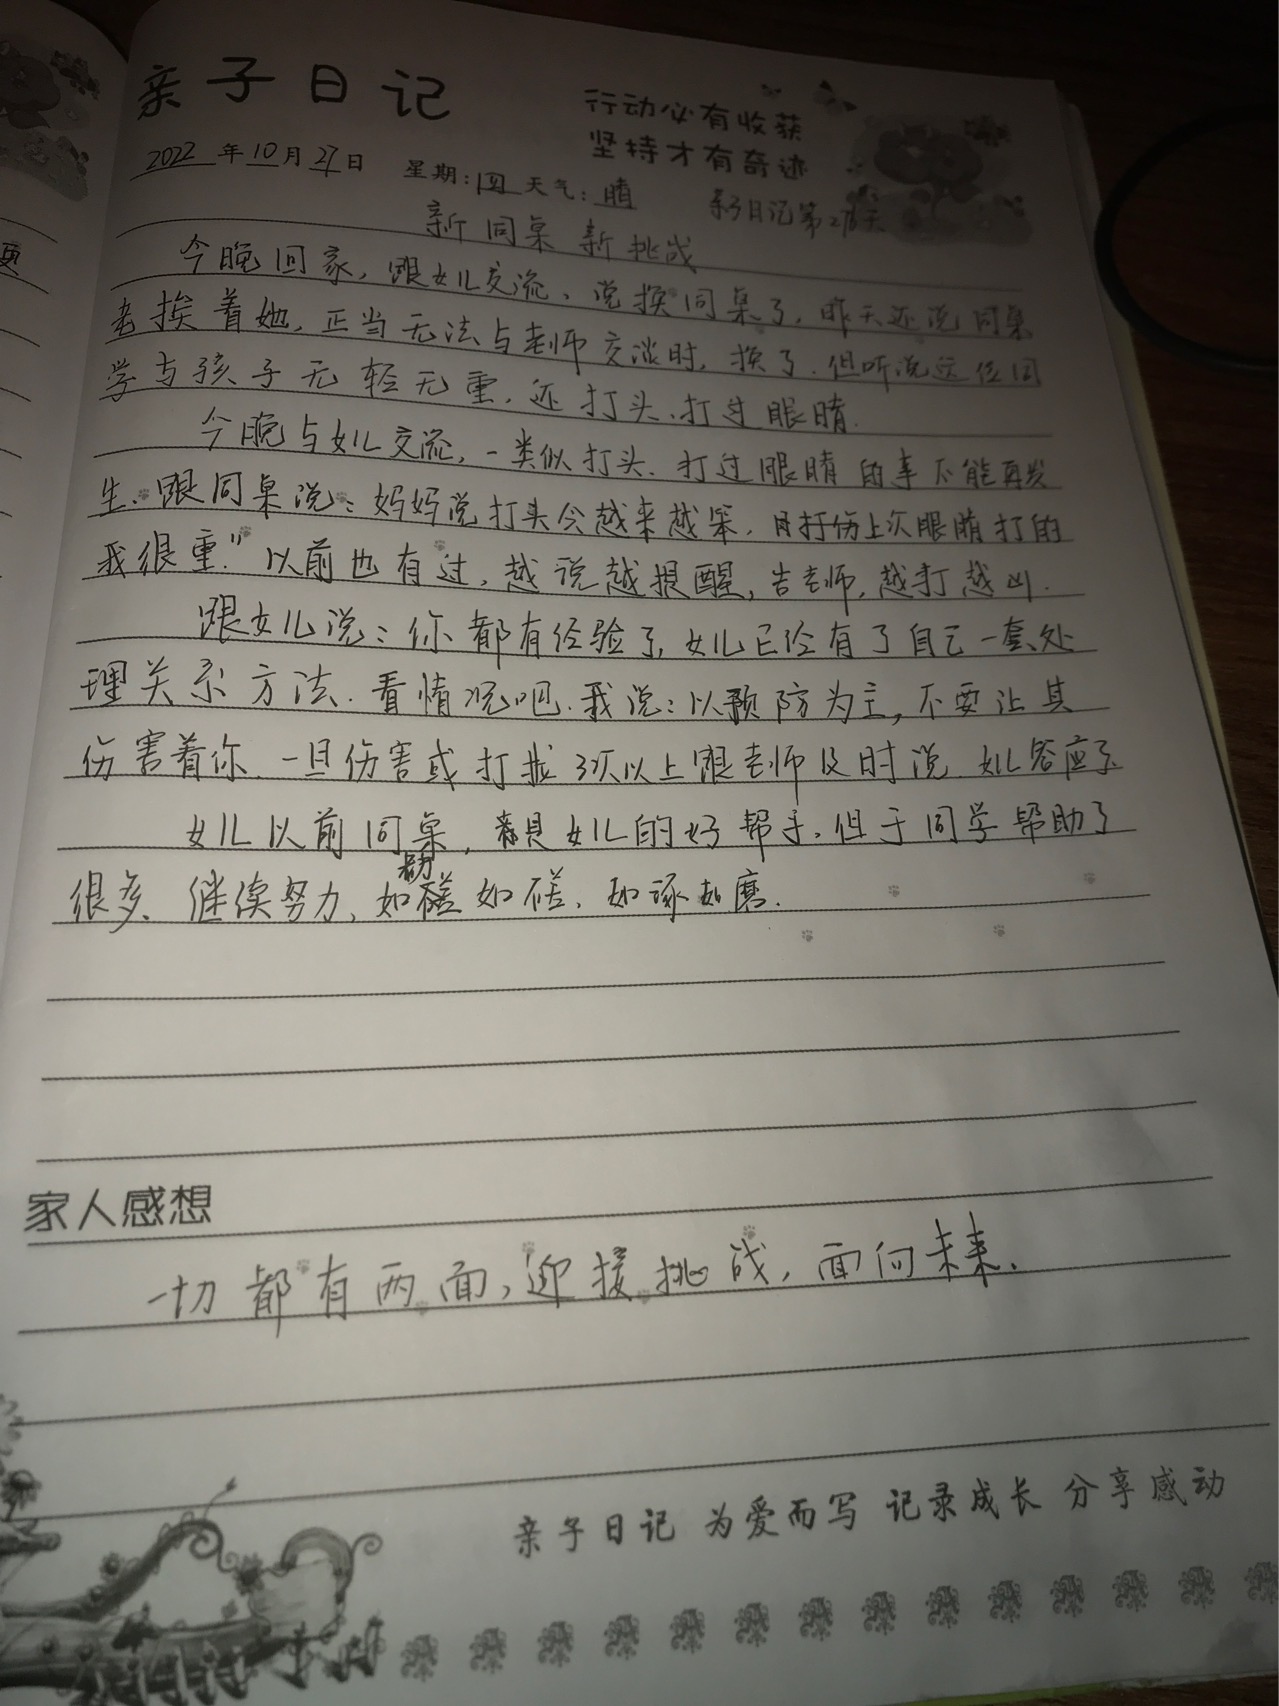 亲子日记
行动必有收获
坚持才有奇迹
2022年10月27日 星期:四 天气:晴 亲子日记第天
新同桌 新挑战
今晚回家,跟女儿交流,说换同桌了,昨天还说同桌
老挨着她,正当无法与老师交谈时,换了.但听说这位同
学与孩子无轻无重,还打头、打过眼睛.
今晚与女儿交流,一类似打头、打过眼睛的事不能再发
生、跟同桌说:妈妈说打头会越来越笨,且打伤上次眼睛打的
我很重!”以前也有过,越说越提醒,告老师,越打越凶.
跟女儿说:你都有经验了,女儿已经有了自己一套处
理关系方法.看情况吧.我说:以预防为主,不要让其
伤害着你.一旦伤害或打扰3次以上跟老师及时说.女儿答应了
女儿以前同桌,竟是女儿的好帮手.但于同学帮助了
很多、继续努力、如切如磋、如琢如磨.
更
家人感想
一切都有两面,迎接挑战,面向未来.
亲子日记 为爱而写 记录成长 分享感动